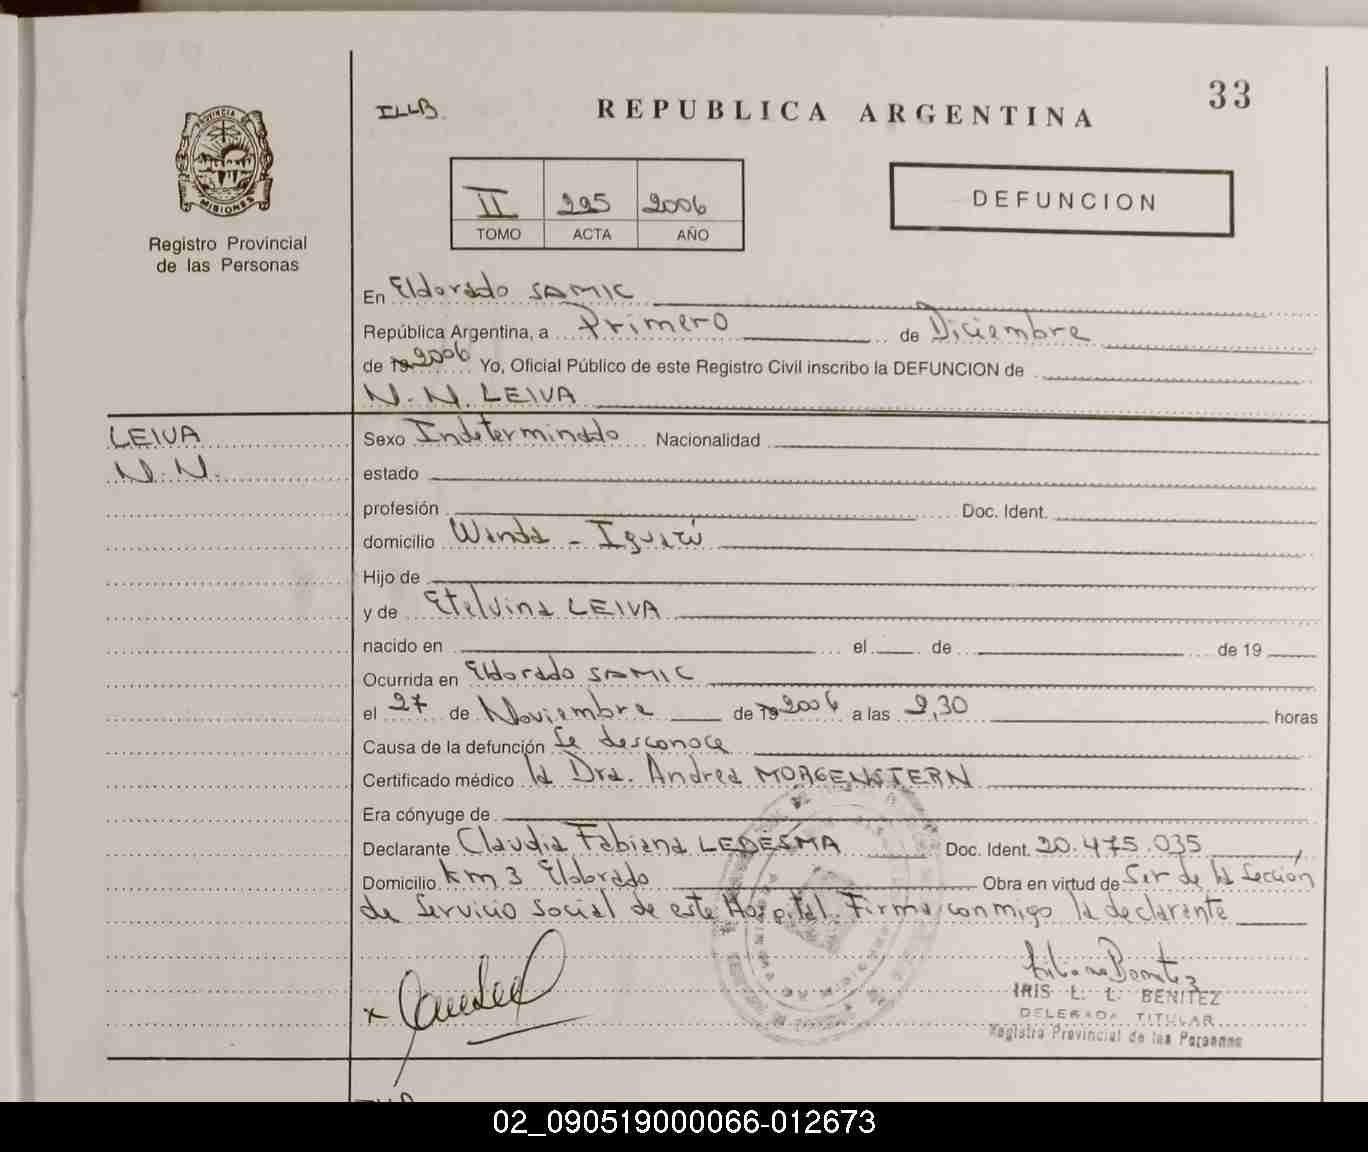 33
ILLB.
REPUBLICA ARGENTINA
PROVINCIA DE
MISIONES
Registro Provincial
de las Personas
II 225 2006
TOMO ACTA AÑO
DEFUNCION
En Eldorado SAMIC
República Argentina, a Primero de Diciembre
de 19 2006 Yo, Oficial Público de este Registro Civil inscribo la DEFUNCION de
N. N. LEIVA
LEIVA
N. N.
Sexo Indeterminado Nacionalidad
estado
profesión Doc. Ident.
domicilio Wanda - Iguazú
Hijo de
y de Etelvina LEIVA
nacido en el de de 19
Ocurrida en Eldorado SAMIC
el 27 de Noviembre de 19 2006 a las 2,30 horas
Causa de la defunción Se desconoce
Certificado médico la Dra. Andrea MORGENSTERN
Era cónyuge de
Declarante Claudia Fabiana LEDESMA Doc. Ident. 20.475.035,
Domicilio km 3 Eldorado Obra en virtud de Ser de la Sección
de Servicio Social de este Hospital. Firma conmigo la declarante
x
IRIS L. L. BENITEZ
DELEGADA TITULAR
Registro Provincial de las Personas
02_090519000066-012673